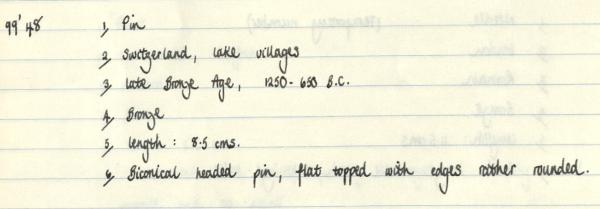 99'48 1, Pin
2, Switzerland, lake villages
3, Late Bronze Age, 1250-650 B.C.
4, Bronze
5, length: 8.5 cms.
6, Biconical headed pin, flat topped with edges rather rounded.